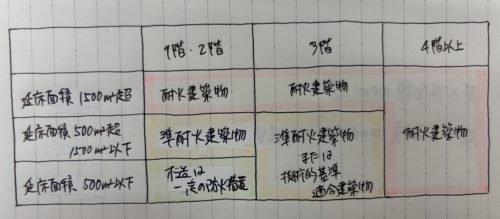 1階・2階
3階
4階以上
延床面積 1500m²超
耐火建築物
耐火建築物
耐火建築物
延床面積 500m²超
1500m²以下
準耐火建築物
準耐火建築物
または
技術的基準
適合建築物
延床面積 500m²以下
木造は
一定の防火措置